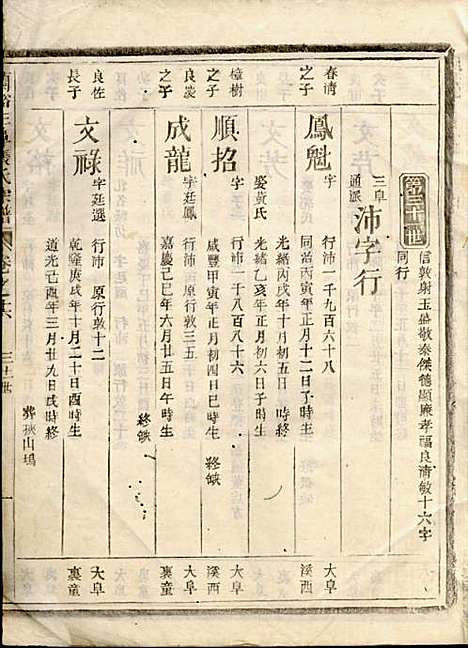 第三十世
信敦尉玉盛敬泰傑德顯廉孝福良濟敏十六字
同行
三阜
通派
沛字行
春濟
之子
鳳魁
字
行沛一千九百六十八
同治丙寅年正月十二日子時生
光緒丙戌年十月初五日時終
大阜
溪西
樟樹
之子
順招
字
娶黃氏
行沛一千八百八十六
光緒乙亥年正月初六日子時生
咸豐甲寅年正月初四日巳時生
終缺
大阜
溪西
良炭
之子
成龍
字廷鳳
行沛 原行敦三五
嘉慶己巳年六月廿五日午時生
終缺
大阜
裏童
良佐
長子
文祿
字廷選
行沛 原行敦十二
乾隆庚戌年十月二十日酉時生
道光己酉年三月廿九日戌時終
葬狄山塢
大阜
裏童
蘭谿三阜裘氏宗譜
卷之六
三十世